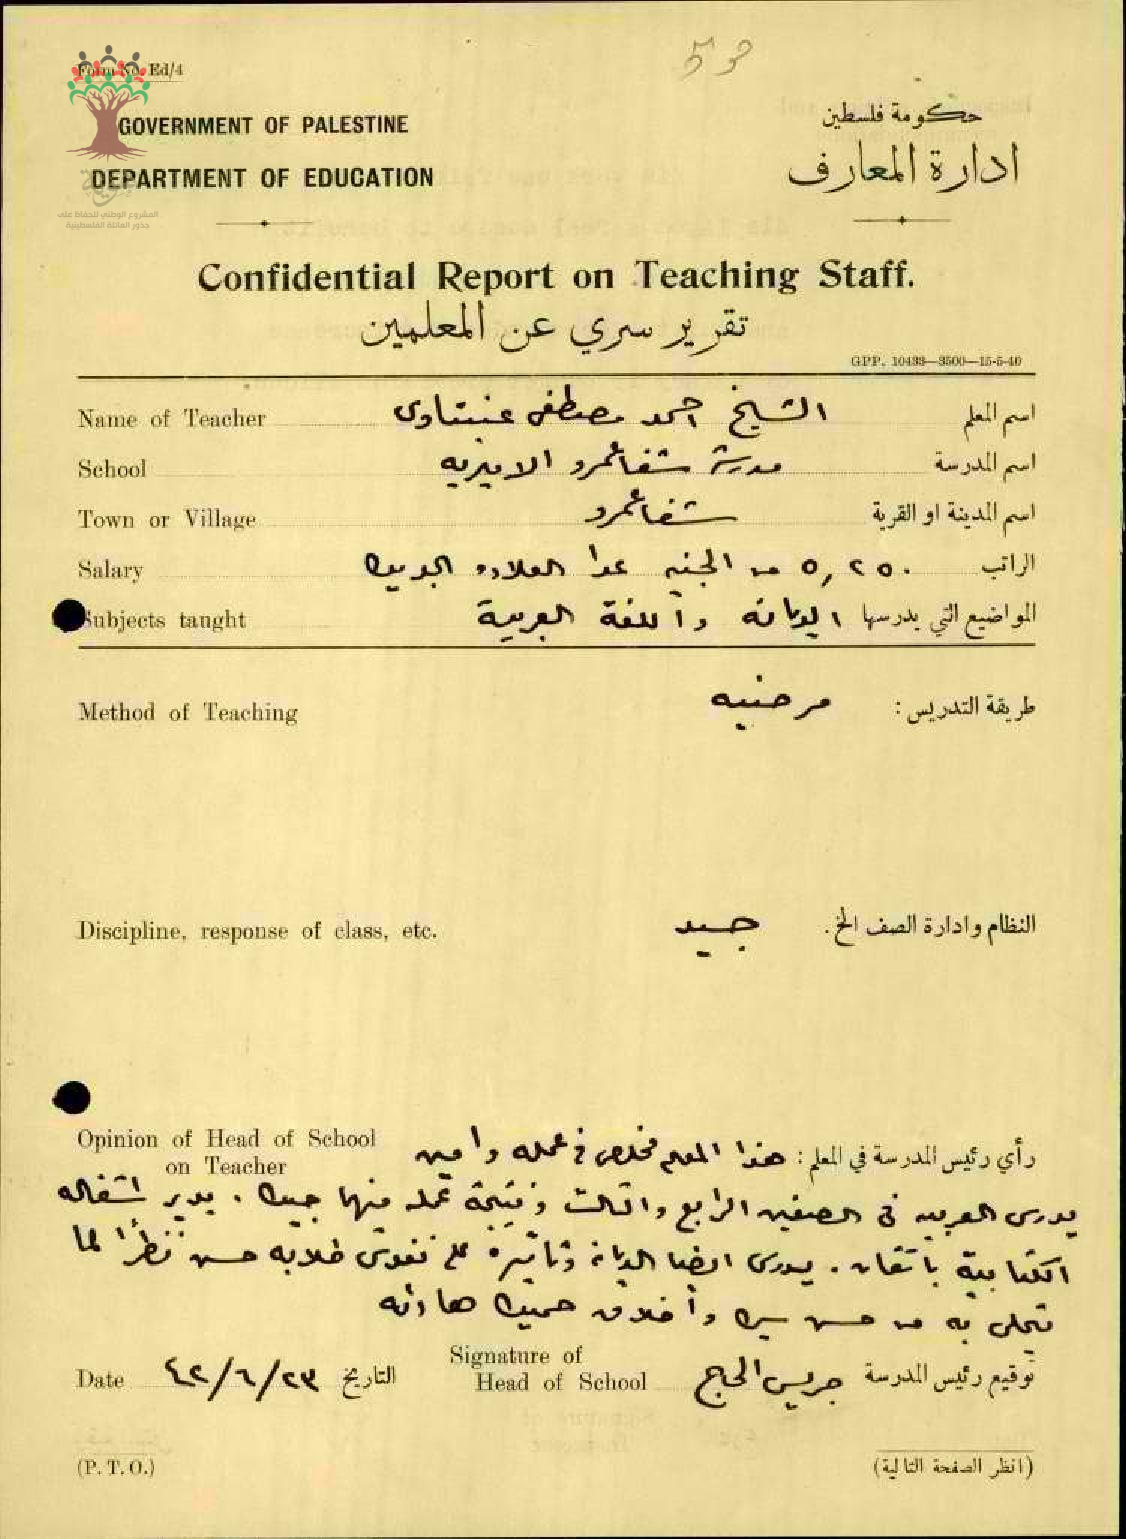 53
Form No. Ed/4
GOVERNMENT OF PALESTINE
حكومة فلسطين
DEPARTMENT OF EDUCATION
ادارة المعارف
المشروع الوطني للحفاظ على
جذور العائلة الفلسطينية
Confidential Report on Teaching Staff.
تقرير سري عن المعلمين
GPP. 10433—3500—15-5-40
Name of Teacher الشيخ احمد مصطفى عنبتاوى اسم المعلم
School مدرسة شفاعمرو الاميريه اسم المدرسة
Town or Village شفاعمرو اسم المدينة او القرية
Salary ٥,٢٥٠ من الجنيه عدا العلاوه الجديده الراتب
Subjects taught الديانه واللغة العربية المواضيع التي يدرسها
Method of Teaching مرضيه طريقة التدريس :
Discipline, response of class, etc. جيد النظام وادارة الصف الخ .
Opinion of Head of School on Teacher
رأي رئيس المدرسة في المعلم : هذا المعلم مخلص في عمله وامين
يدرس العربيه في الصفين الرابع والثالث ونتيجة عمله فيهما جيده . يدير اشغاله
الكتابية باتقان . يدرس ايضا الديانه وتاثيره على نفوس طلابه حسن نظرًا لما
يتحلى به من حسن سيره وأخلاق حميده هادئه
Date ٤٢/٦/٢٣ التاريخ
Signature of Head of School جريس الحاج توقيع رئيس المدرسة
(P. T. O.)
(انظر الصفحة التالية)